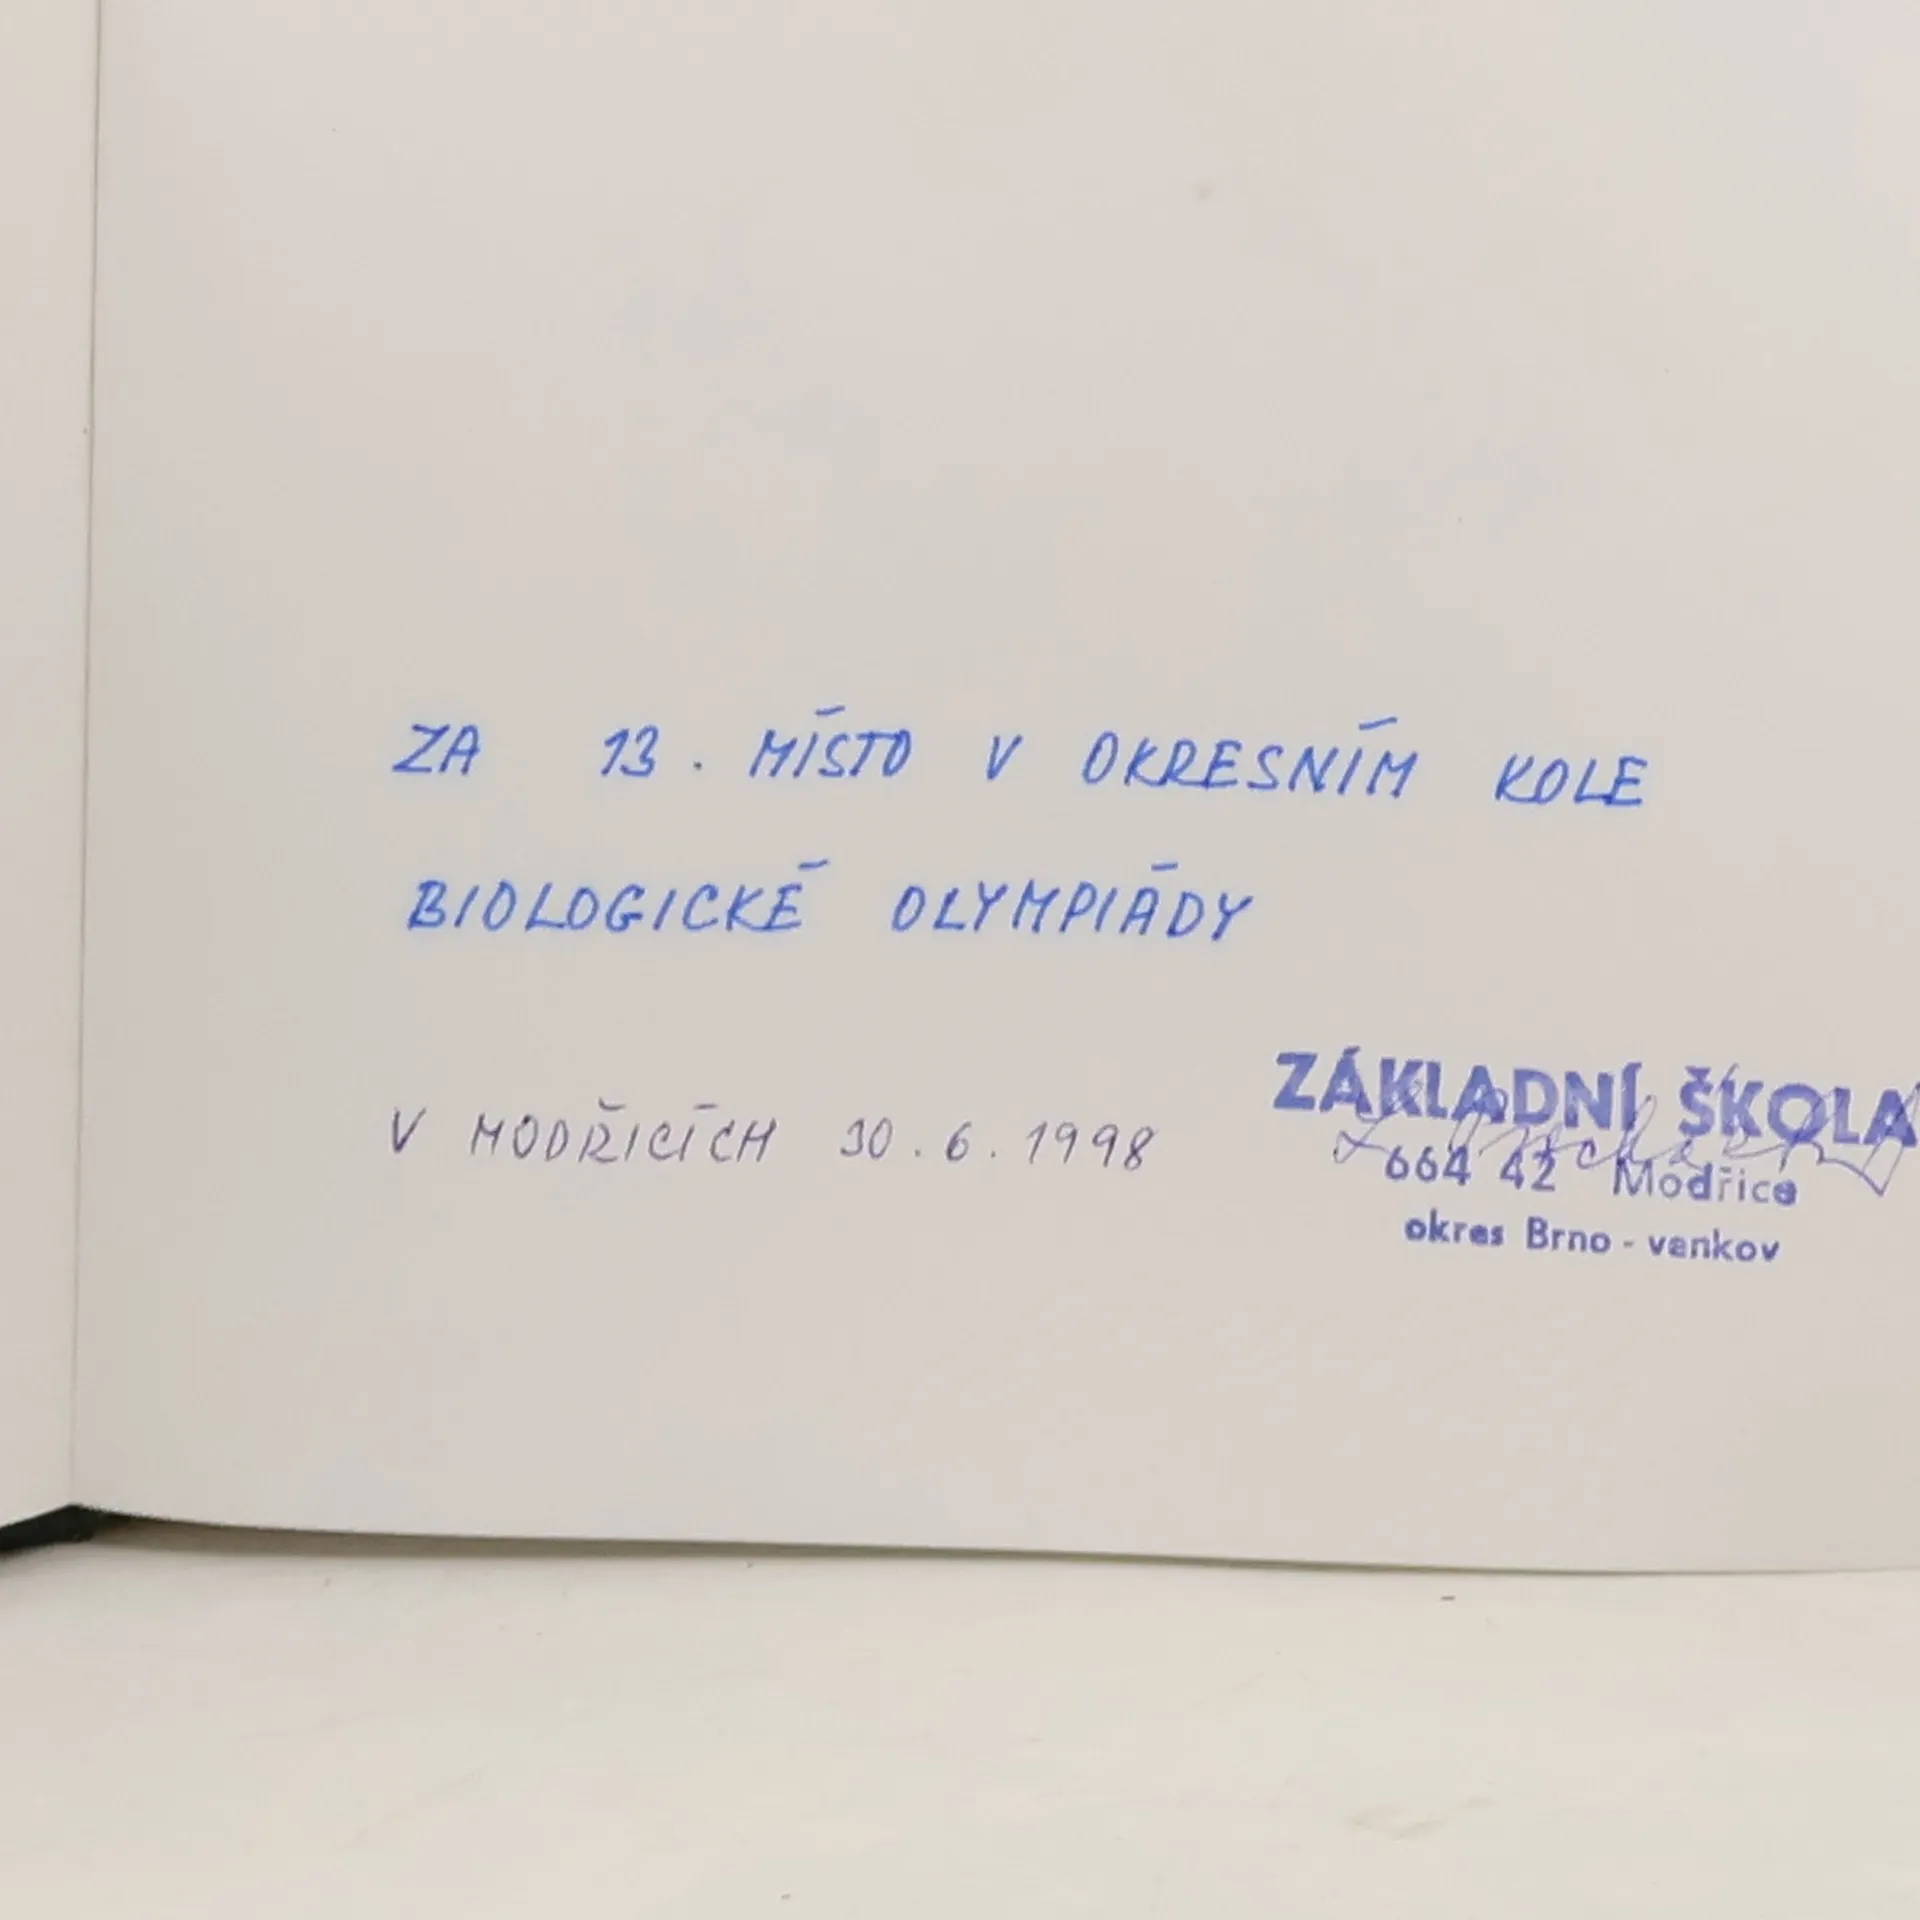 ZA 13. MÍSTO V OKRESNÍM KOLE
BIOLOGICKÉ OLYMPIÁDY
V MODŘICÍCH 30.6.1998
ZÁKLADNÍ ŠKOLA
664 42 Modřice
okres Brno - venkov